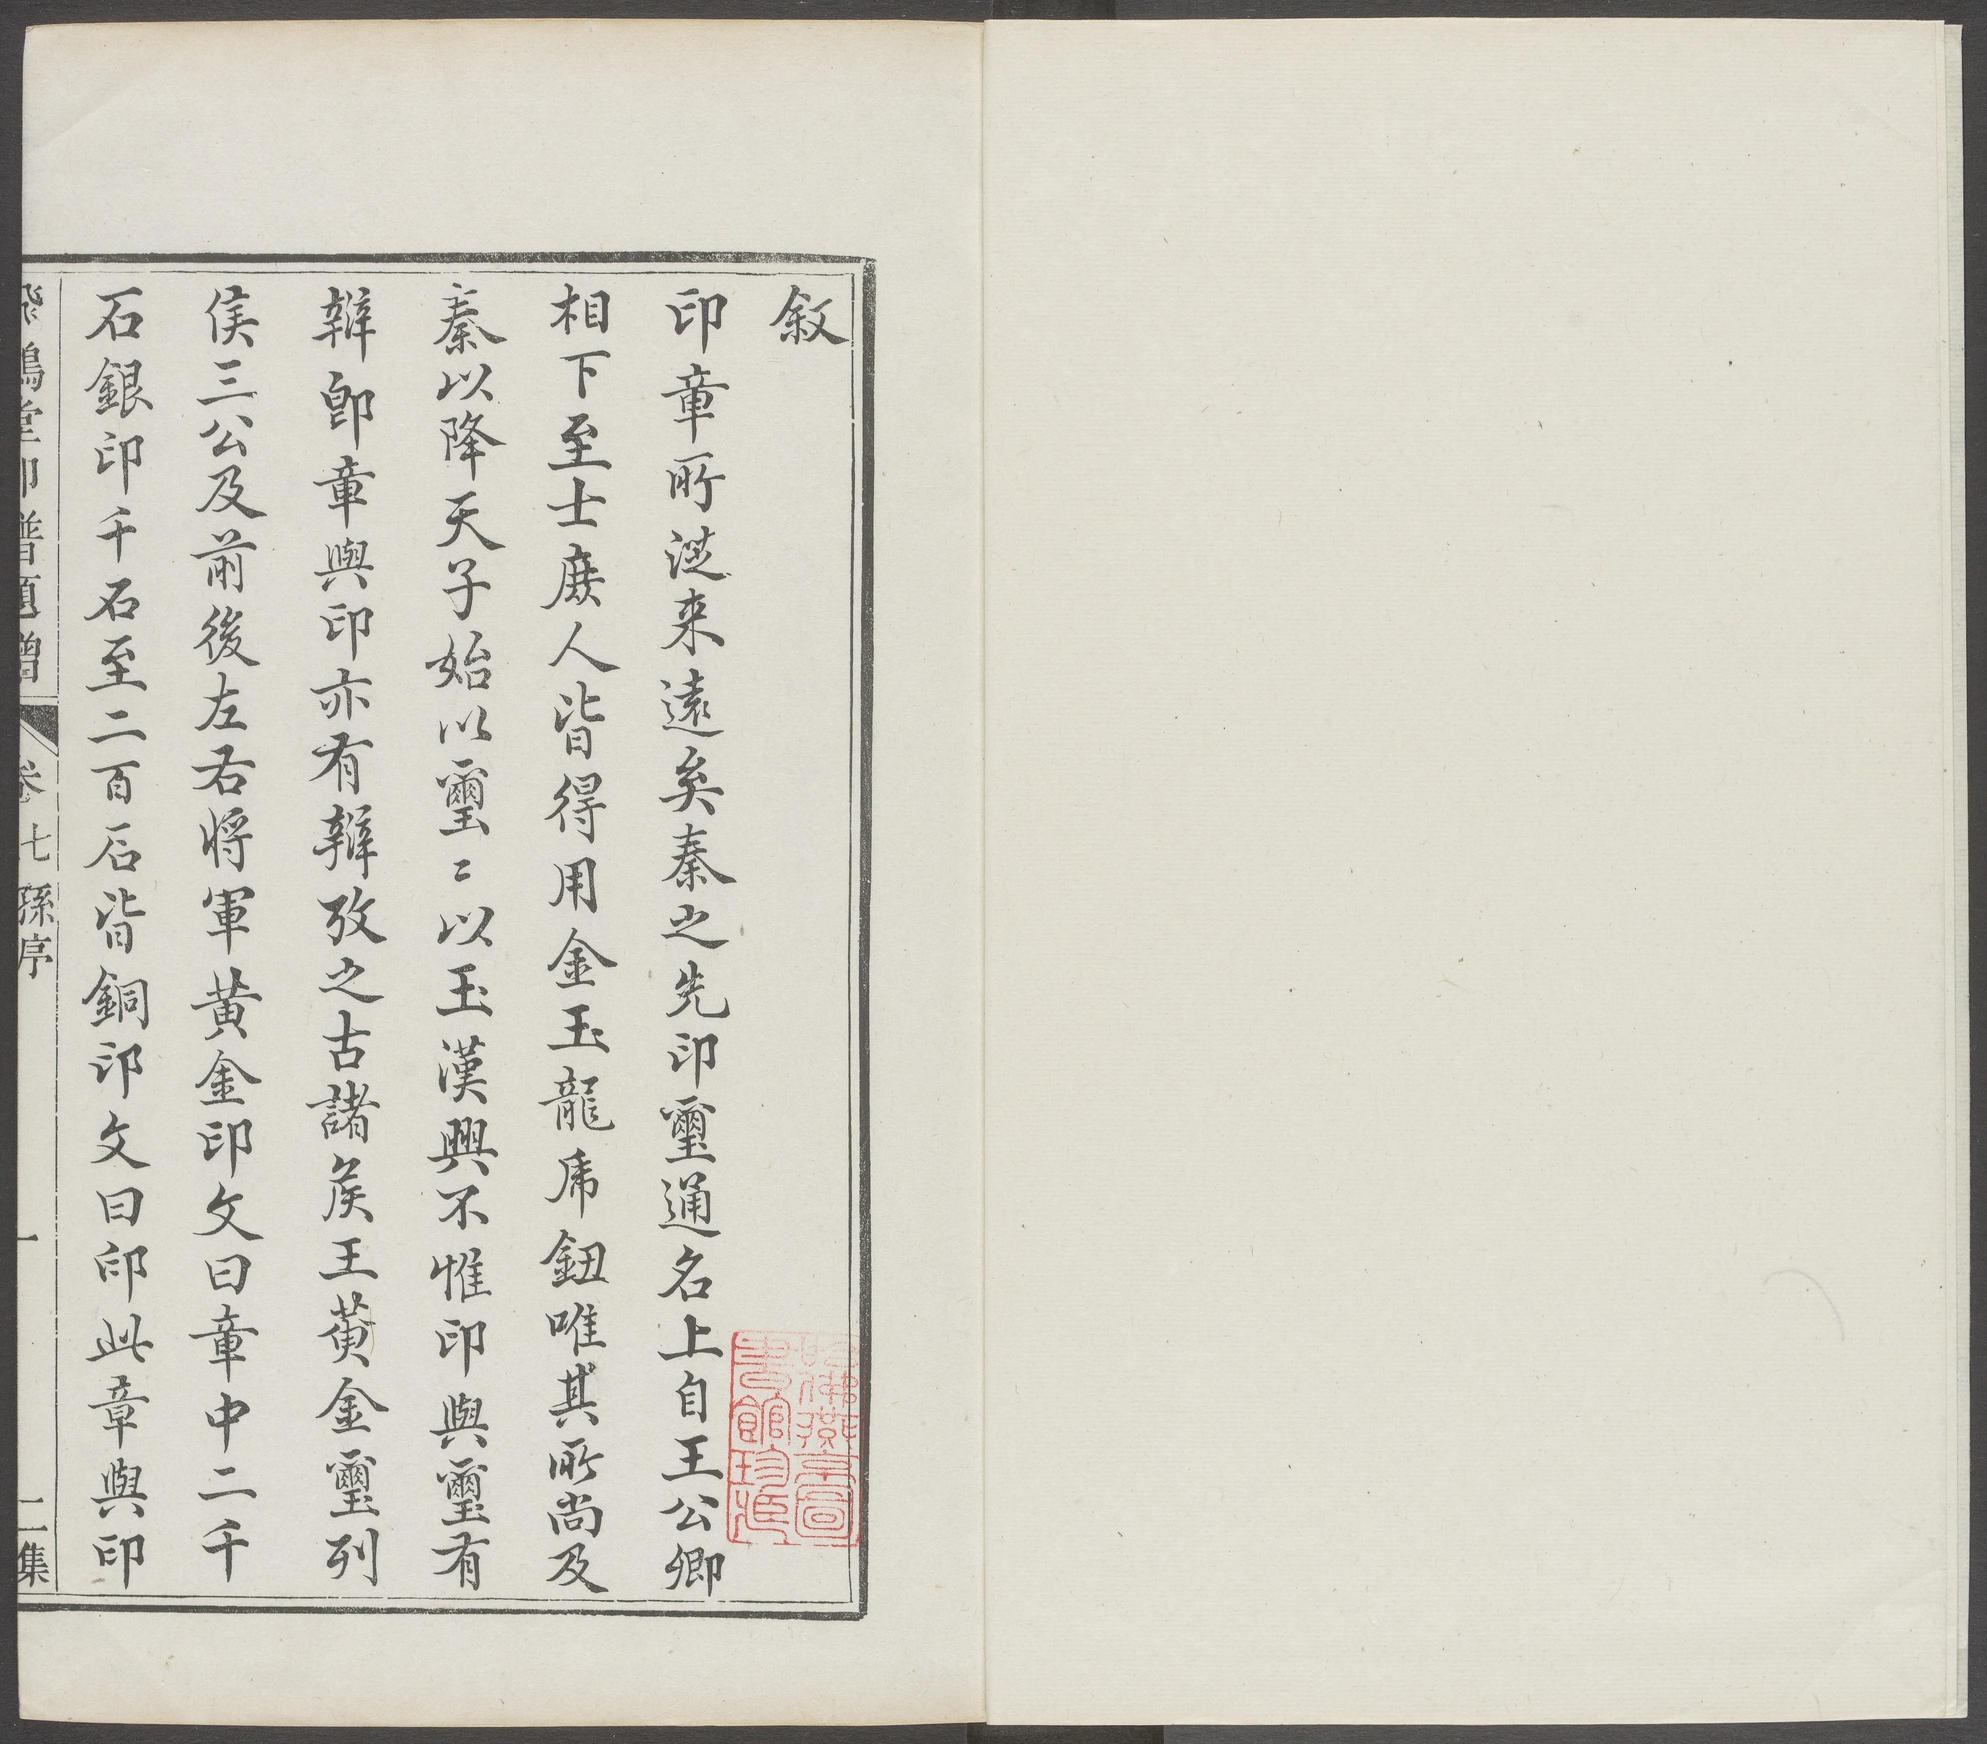 敘
印章所從来遠矣秦之先印璽通名上自王公卿
相下至士庶人皆得用金玉龍虎鈕唯其所尚及
秦以降天子始以璽〻以玉漢興不惟印與璽有
辯即章與印亦有辯攷之古諸侯王黃金璽列
侯三公及前後左右將軍黄金印文曰章中二千
石銀印千石至二百石皆銅印文曰印此章與印
飛鴻堂印譜題贈 卷七 孫序 一 二集
哈佛燕京圖
書館珍藏